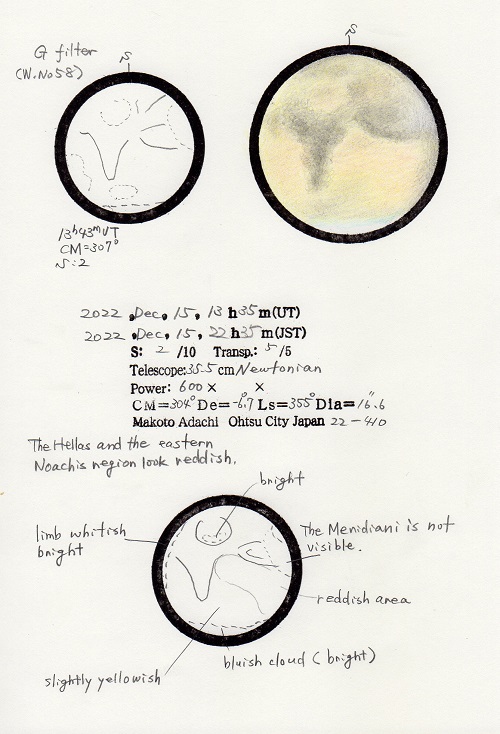 G filter
(W.No58)
S
S
13h43mUT
CM=307°
S:2
2022.Dec.15, 13 h35m(UT)
2022.Dec.15, 22 h35m(JST)
S: 2 /10 Transp.: 5/5
Telescope:35.5cm Newtonian
Power: 600× ×
CM=304° De=-6.°7 Ls=355° Dia=16.″6
Makoto Adachi Ohtsu City Japan 22-410
The Hellas and the eastern
Noachis region look reddish.
bright
limb whitish
bright
The Meridiani is not
visible.
reddish area
bluish cloud (bright)
slightly yellowish